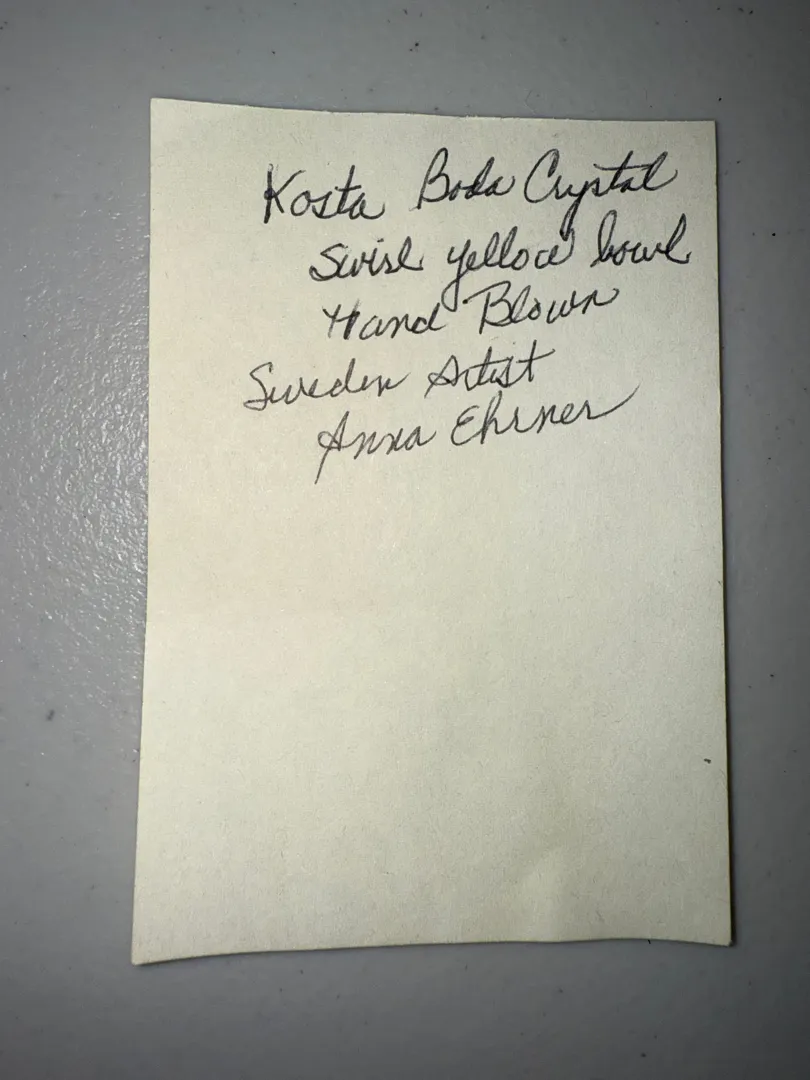 Kosta Boda Crystal
Swirl yellow bowl
Hand Blown
Sweden Artist
Anna Ehrner